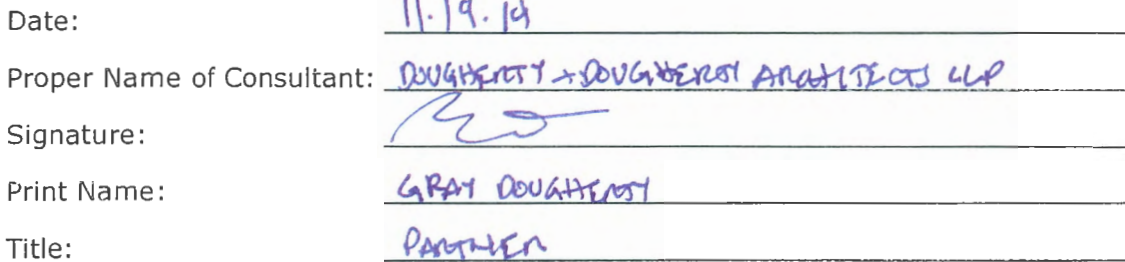 Date: 11.19.19
Proper Name of Consultant: DOUGHERTY + DOUGHERTY ARCHITECTS LLP
Signature:
Print Name: GRAY DOUGHERTY
Title: PARTNER